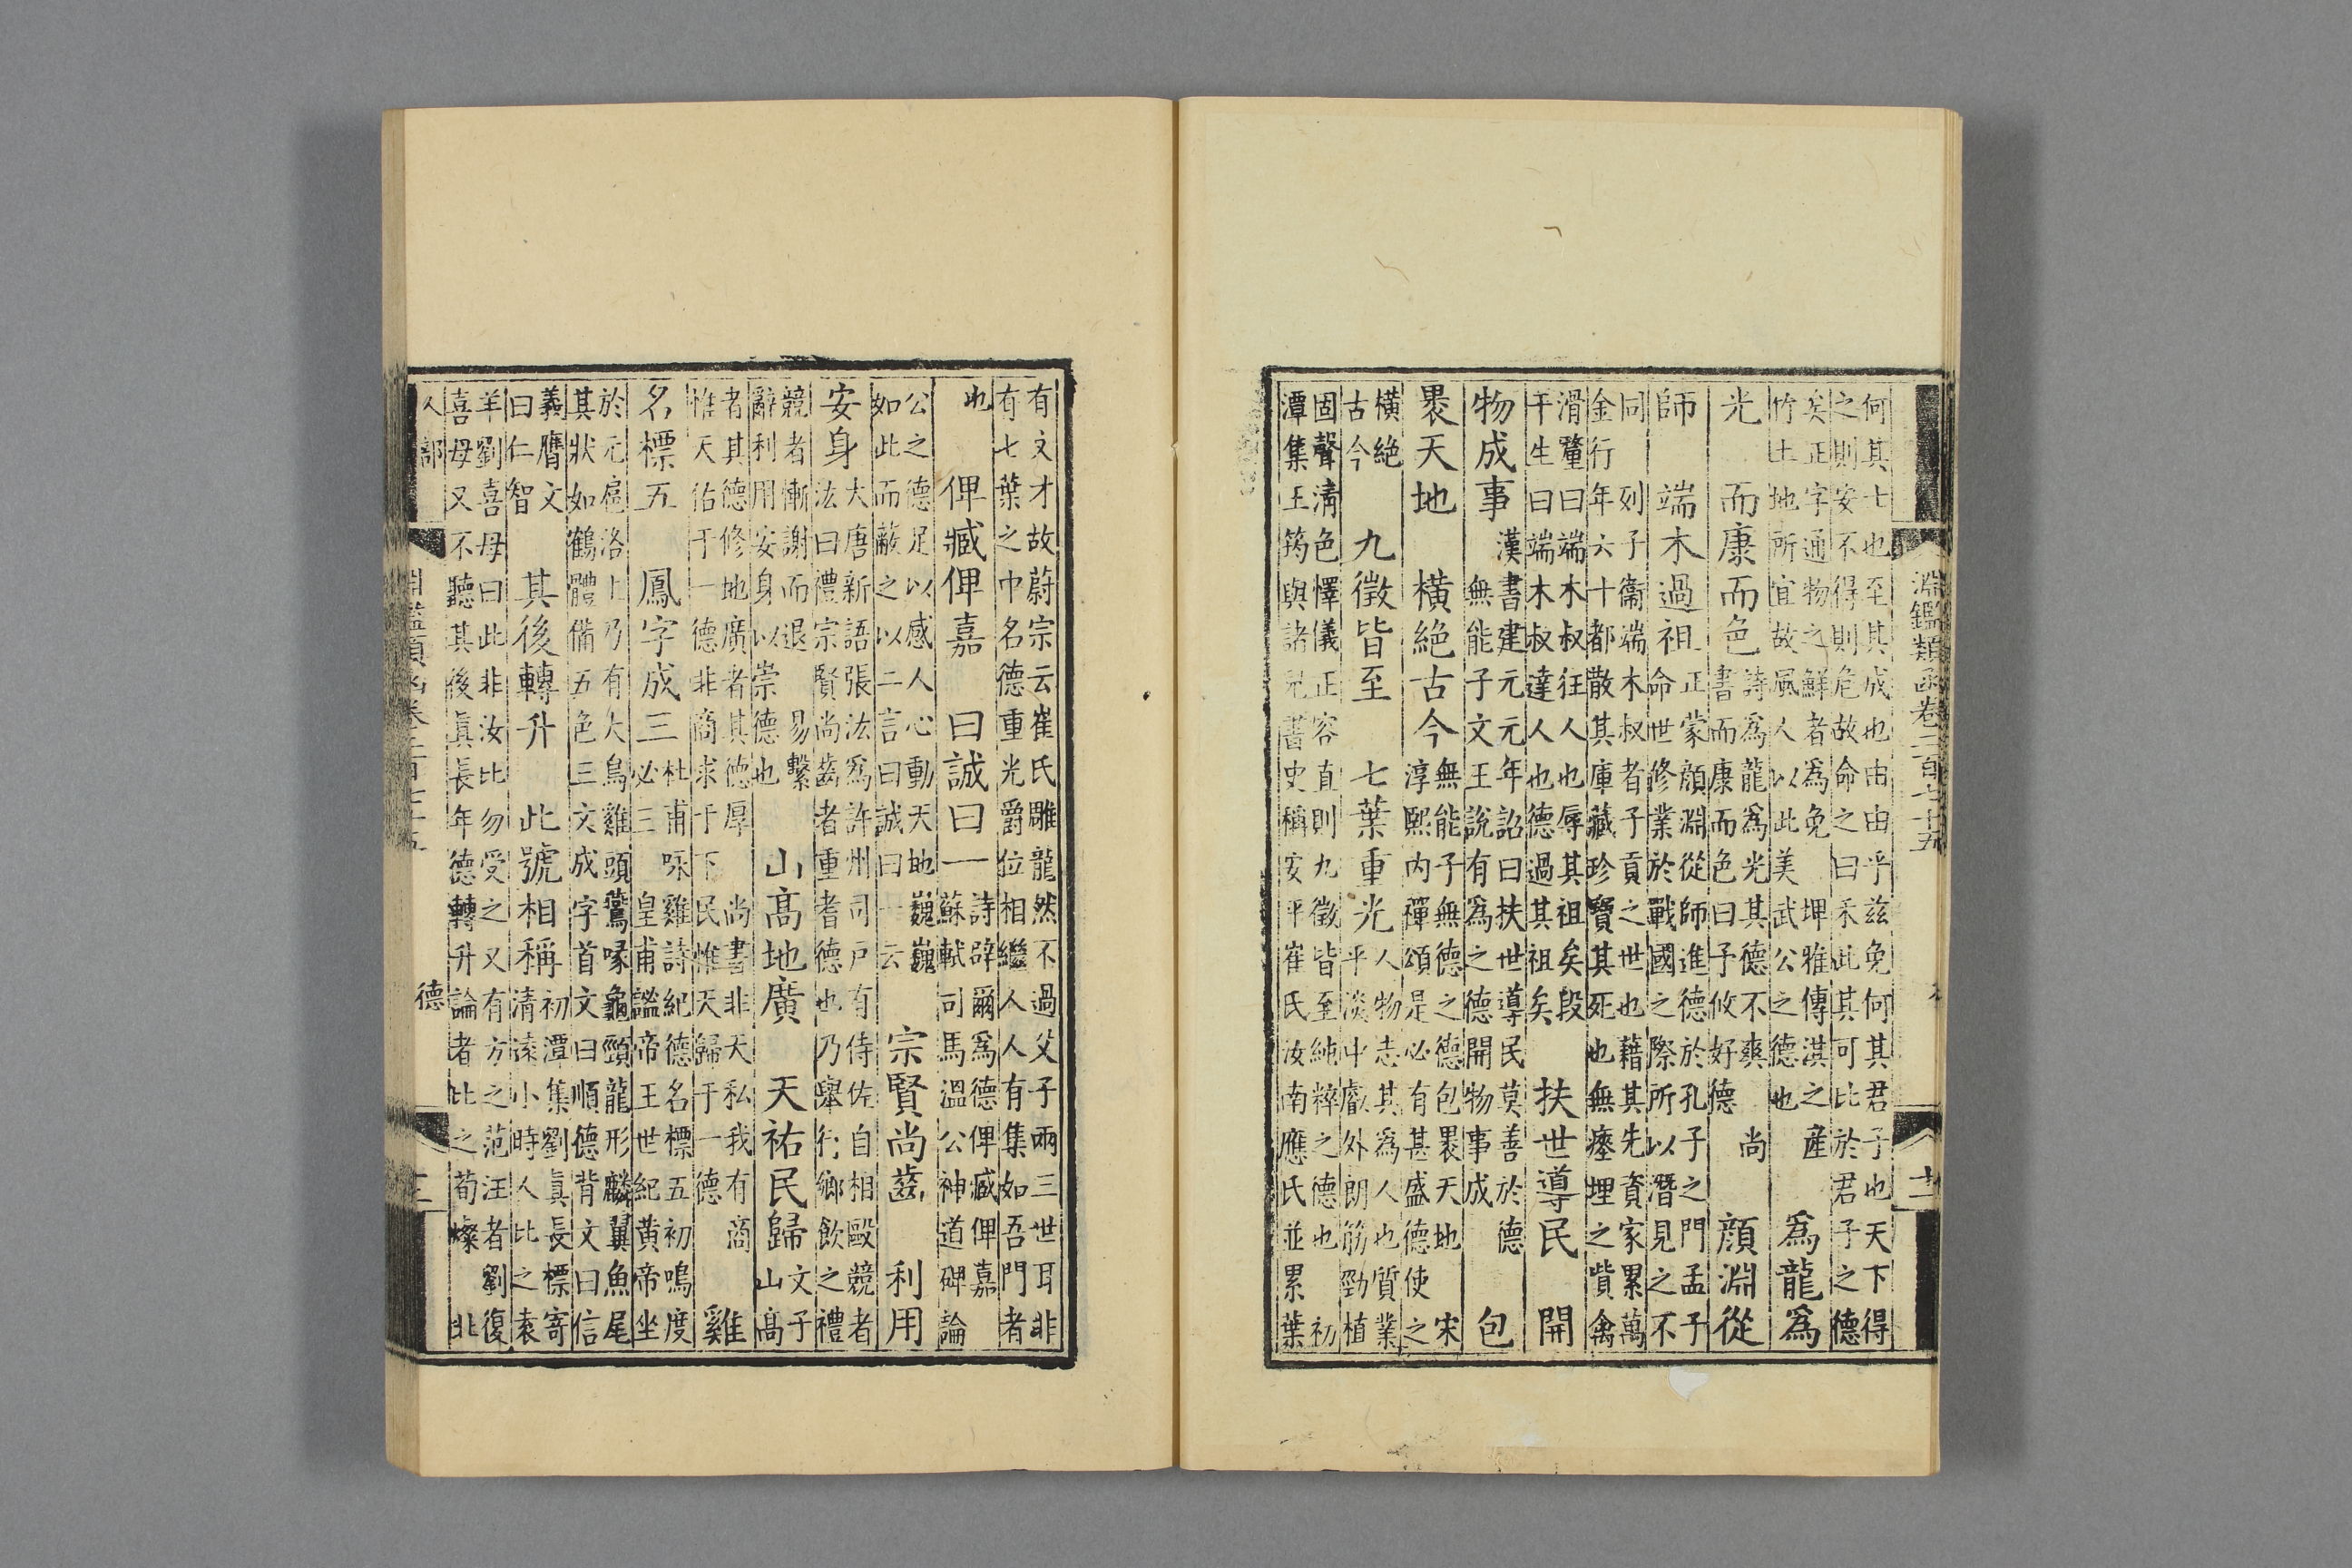 淵鑑類函卷二百七十五
何其士也至其成也由由乎茲免何其君子也天下得
之則安不得則危故命之曰禾此其可比於君子之德
矣正字通物之鮮者爲免　埤雅傳淇之産
竹土地所宜故風人以此美武公之德也
爲龍爲
光　而康而色
詩爲龍爲光其德不爽　尚
書而康而色曰予攸好德
顏淵從
師　端木過祖
正蒙顏淵從師進德於孔子之門孟子
命世修業於戰國之際所以潛見之不
同　列子衞端木叔者子貢之世也藉其先資家累萬
金行年六十都散其庫藏珍寶其死也無瘞埋之貲禽
滑釐曰端木叔狂人也辱其祖矣段
干生曰端木叔達人也德過其祖矣
扶世導民　開
物成事
漢書建元元年詔曰扶世導民莫善於德
無能子文王說有爲之德開物事成
包
褁天地　橫絶古今
無能子無德之德包褁天地　宋
淳熙内禪頌是必有甚盛德使之
橫絶
古今
九徵皆至　七葉重光
人物志其爲人也質業
平淡中叡外朗筋勁植
固聲清色懌儀正容直則九徵皆至純粹之德也　初
潭集王筠與諸兒書史稱安平崔氏汝南應氏並累葉
有文才故蔚宗云崔氏雕龍然不過父子兩三世耳非
有七葉之中名德重光爵位相繼人人有集如吾門者
也　俾臧俾嘉　曰誠曰一
詩辟爾爲德俾臧俾嘉
蘇軾司馬溫公神道碑論
公之德足以感人心動天地巍巍
如此而蔽之以二言曰誠曰一云
宗賢尚齒　利用
安身
大唐新語張汯爲許州司戶有侍佐自相毆競者
汯曰禮宗賢尚齒者重耆德也乃舉行鄉飲之禮
競者慚謝而退　易繫
辭利用安身以崇德也
山髙地廣　天祐民歸
文子
山髙
者其德修地廣者其德厚　尚書非天私我有商
惟天佑于一德非商求于下民惟天歸于一德
雞
名標五　鳳字成三
杜甫咏雞詩紀德名標五初鳴度
必三　皇甫謐帝王世紀黄帝坐
於元扈洛上乃有大鳥雞頭鷰喙龜頸龍形麟翼魚尾
其狀如鶴體備五色三文成字首文曰順德背文曰信
義膺文
曰仁智
其後轉升　此號相稱
初潭集劉眞長標寄
清遠小時人比之袁
羊劉喜母曰此非汝比勿受之又有方之范汪者劉復
喜母又不聽其後眞長年德轉升論者比之荀粲　北
人部
淵鑑類函卷二百七十五
德